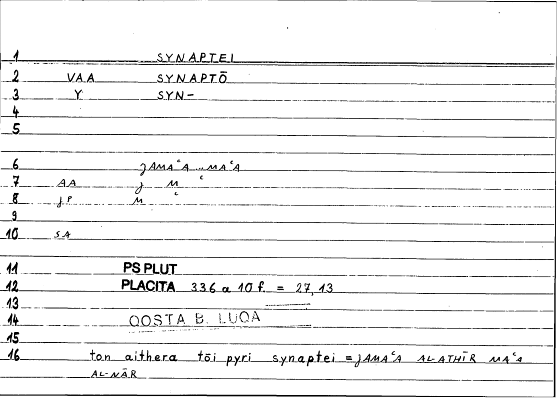 1 SYNAPTEI
2 VAA SYNAPTŌ
3 Y SYN-
4
5
6 ȷAMAʿA ... MAʿA
7 AA ȷ M ʿ
8 ȷP M ʿ
9
10 SA
11 PS PLUT
12 PLACITA 336 a 10 f. = 27,13
13
14 QOSTA B. LUQA
15
16 ton aithera tōi pyri synaptei = ȷAMAʿA AL-ATHĪR MAʿA
AL-NĀR